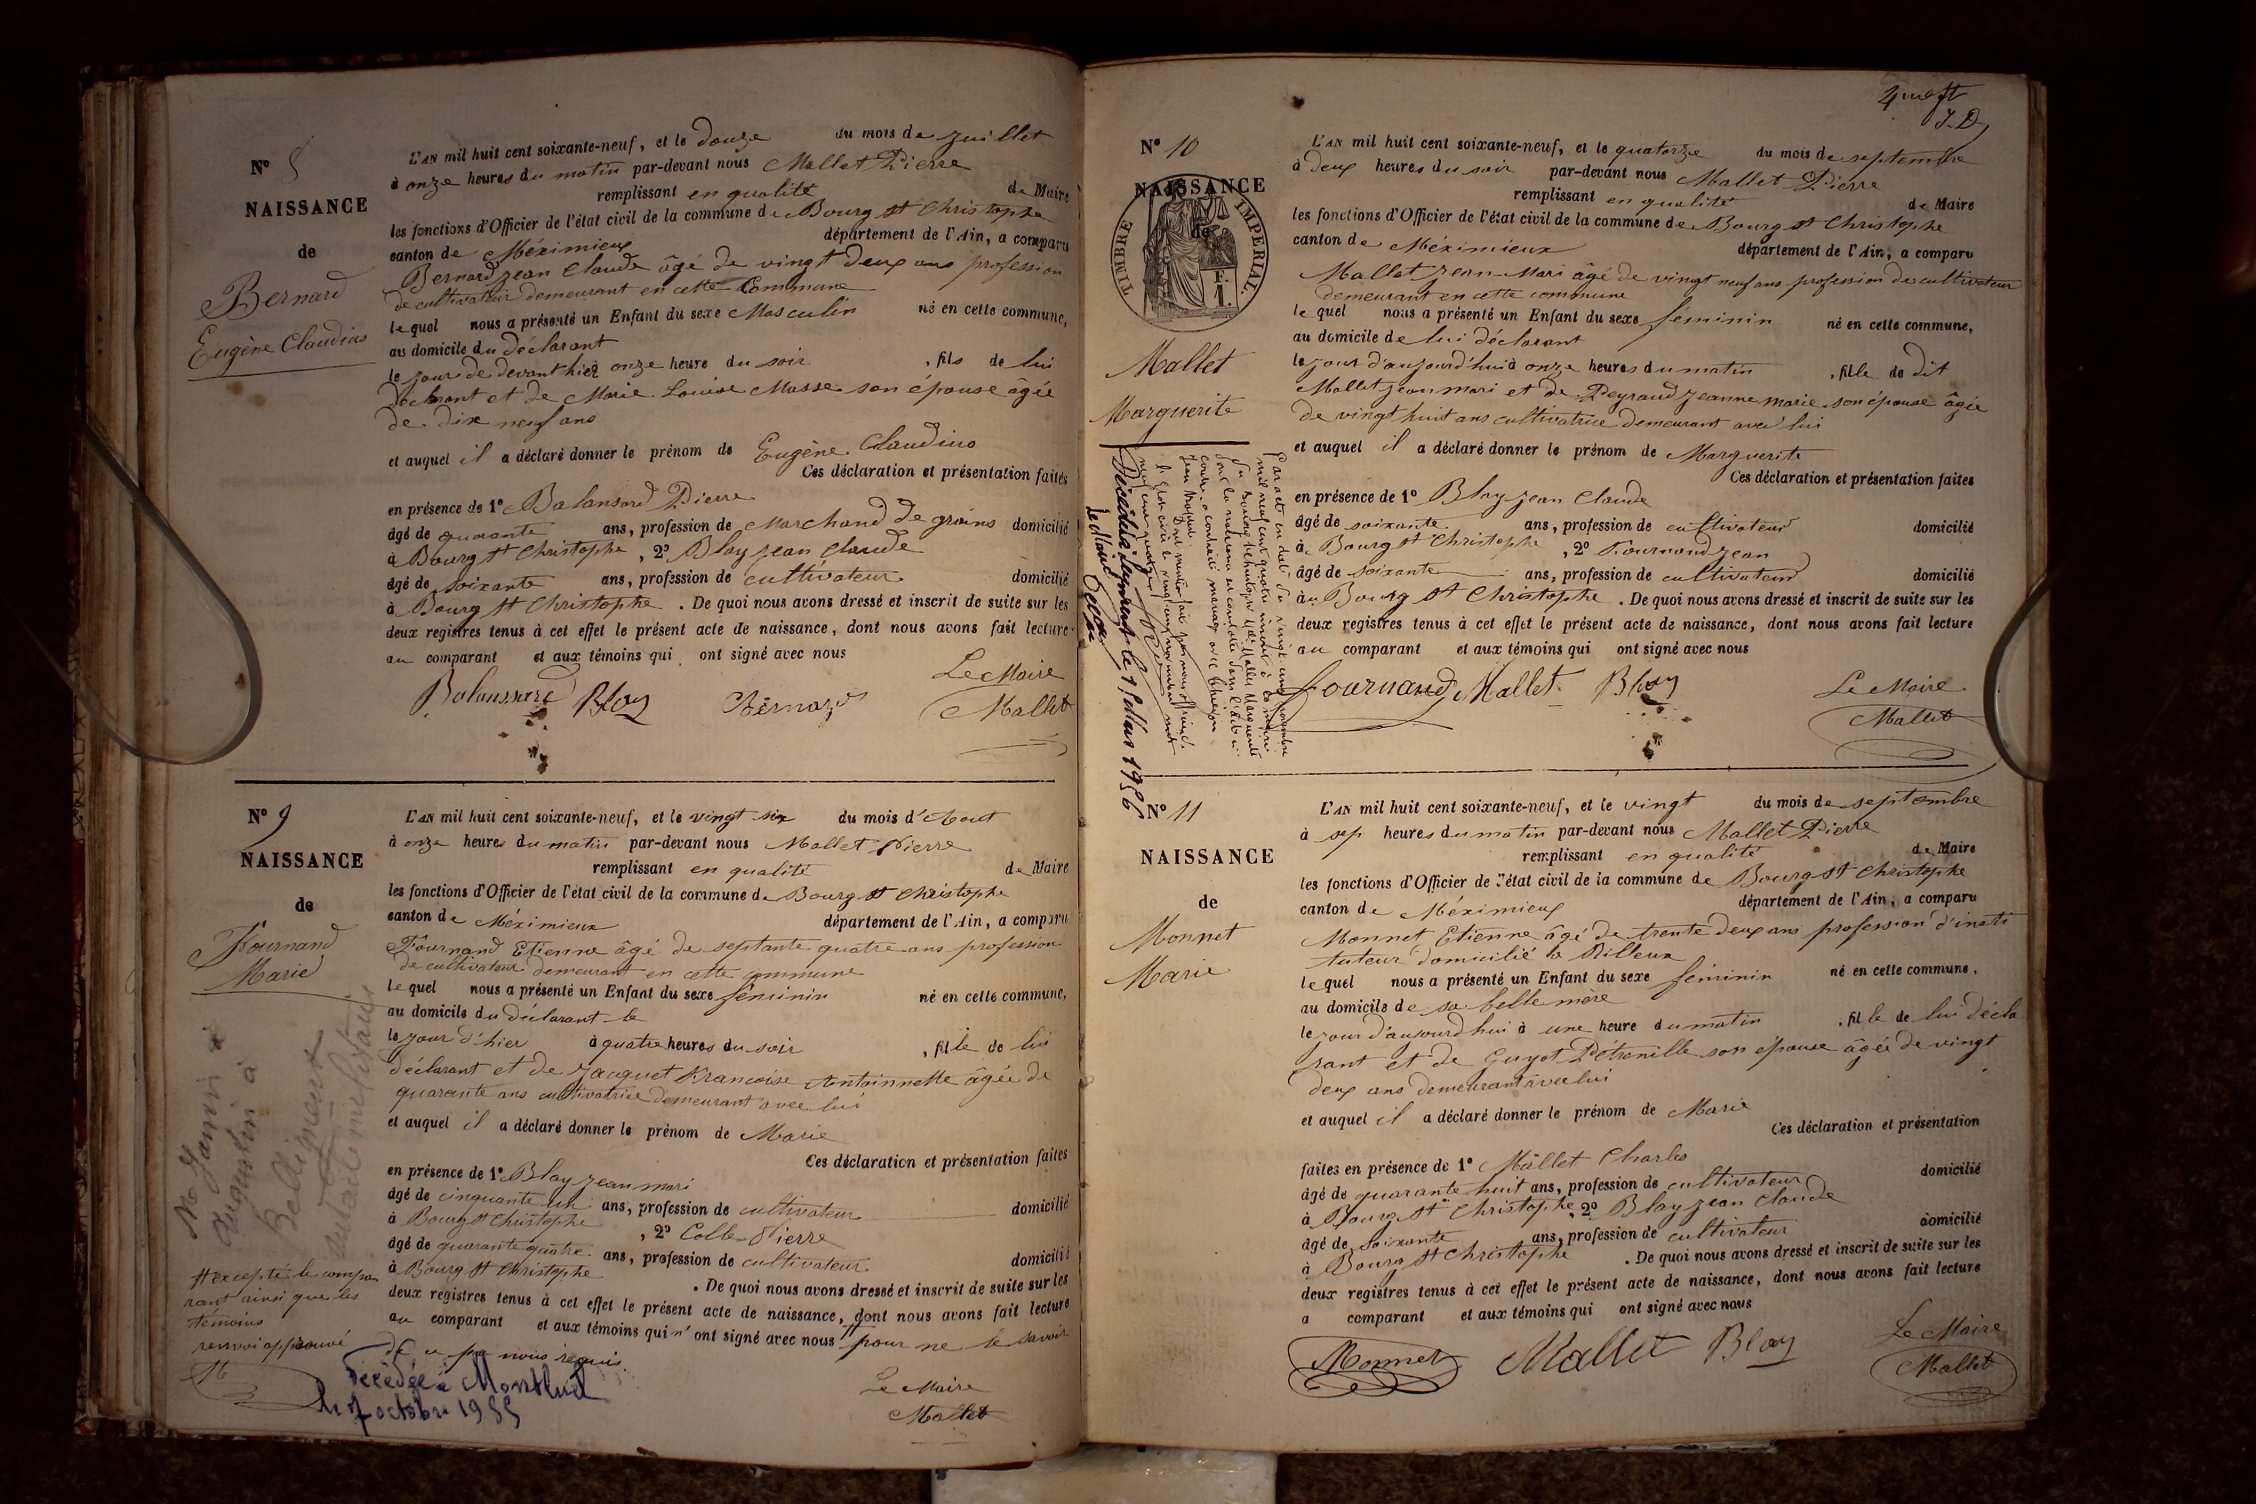 N° 8
NAISSANCE
de
Bernard
Eugène Claudius
L'AN mil huit cent soixante-neuf, et le douze du mois de juillet
à onze heures du matin par-devant nous Mallet Pierre
remplissant en qualité de Maire
les fonctions d'Officier de l'état civil de la commune de Bourg St Christophe
canton de Méximieux département de l'Ain, a comparu
Bernard jean Claude âgé de vingt deux ans profession
de cultivateur demeurant en cette Commune
lequel nous a présenté un Enfant du sexe Masculin né en cette commune,
au domicile du déclarant
le jour de devant hier onze heure du soir , fils de lui
déclarant et de Marie Louise Masse son épouse âgée
de dix neuf ans
et auquel il a déclaré donner le prénom de Eugène Claudius
Ces déclaration et présentation faites
en présence de 1° Balansard Pierre
âgé de quarante ans, profession de Marchand de grains domicilié
à Bourg St Christophe , 2° Blay jean Claude
âgé de soixante ans, profession de cultivateur domicilié
à Bourg St Christophe . De quoi nous avons dressé et inscrit de suite sur les
deux registres tenus à cet effet le présent acte de naissance, dont nous avons fait lecture
au comparant et aux témoins qui ont signé avec nous
Le Maire
Balanssard Blay Bernard Mallet
N° 9
NAISSANCE
de
Fournand
Marie
L'AN mil huit cent soixante-neuf, et le vingt six du mois d'Aout
à onze heures du matin par-devant nous Mallet Pierre
remplissant en qualité de Maire
les fonctions d'Officier de l'état civil de la commune de Bourg St Christophe
canton de Méximieux département de l'Ain, a comparu
Fournand Etienne âgé de septante quatre ans profession
de cultivateur demeurant en cette commune
lequel nous a présenté un Enfant du sexe féminin né en cette commune,
au domicile du déclarant le
le jour d'hier à quatre heures du soir , fille de lui
déclarant et de Jacquet Francoise Antoinnette âgée de
quarante ans cultivatrice demeurant avec lui
et auquel il a déclaré donner le prénom de Marie
Ces déclaration et présentation faites
en présence de 1° Blay jean mari
âgé de cinquante un ans, profession de cultivateur domicilié
à Bourg St Christophe , 2° Colle Pierre
âgé de quarante quatre ans, profession de cultivateur domicilié
à Bourg St Christophe . De quoi nous avons dressé et inscrit de suite sur les
deux registres tenus à cet effet le présent acte de naissance, dont nous avons fait lecture
au comparant et aux témoins qui n'ont signé avec nous # pour ne le savoir
de ce par nous requis.
# excepté le compa
rant ainsi que les
témoins
renvoi approuvé
M
Décédée à Montluel
le 7 octobre 1955
Le Maire
Mallet
N° 10
NAISSANCE
de
TIMBRE IMPERIAL
F.
1.
Mallet
Marguerite
Par acte en date du vingt cinq novembre
mil neuf cent quatre inscrit à la mairie
du Bourg St Christophe Mlle Mallet Marguerite
dont la naissance est constatée dans l'acte ci
contre a contracté mariage avec
Décédée à le 15 Mars 1956
Le Maire
L'AN mil huit cent soixante-neuf, et le quatorze du mois de septembre
à deux heures du soir par-devant nous Mallet Pierre
remplissant en qualité de Maire
les fonctions d'Officier de l'état civil de la commune de Bourg St Christophe
canton de Méximieux département de l'Ain, a comparu
Mallet jean Mari âgé de vingt neuf ans profession de cultivateur
demeurant en cette commune
lequel nous a présenté un Enfant du sexe féminin né en cette commune,
au domicile de lui déclarant
le jour d'aujourd'hui à onze heures du matin , fille de dit
Mallet jean mari et de Peyraud jeanne marie son épouse âgée
de vingt huit ans cultivatrice demeurant avec lui
et auquel il a déclaré donner le prénom de Marguerite
Ces déclaration et présentation faites
en présence de 1° Blay jean Claude
âgé de soixante ans, profession de cultivateur domicilié
à Bourg St Christophe , 2° Fournand jean
âgé de soixante ans, profession de cultivateur domicilié
à Bourg St Christophe . De quoi nous avons dressé et inscrit de suite sur les
deux registres tenus à cet effet le présent acte de naissance, dont nous avons fait lecture
au comparant et aux témoins qui ont signé avec nous
Fournand Mallet Blay Le Maire
Mallet
N° 11
NAISSANCE
de
Monnet
Marie
L'AN mil huit cent soixante-neuf, et le vingt du mois de septembre
à sep heures du matin par-devant nous Mallet Pierre
remplissant en qualité de Maire
les fonctions d'Officier de l'état civil de la commune de Bourg St Christophe
canton de Méximieux département de l'Ain, a comparu
Monnet Etienne âgé de trente deux ans profession d'insti
tuteur domicilié à Rilleux
lequel nous a présenté un Enfant du sexe féminin né en cette commune,
au domicile de sa belle mère
le jour d'aujourd'hui à une heure du matin , fille de lui décla
rant et de Guyot Pétronille son épouse âgée de vingt
deux ans demeurant avec lui
et auquel il a déclaré donner le prénom de Marie
Ces déclaration et présentation
faites en présence de 1° Mallet Charles
âgé de quarante huit ans, profession de cultivateur domicilié
à Bourg St Christophe, 2° Blay jean Claude
âgé de soixante ans, profession de cultivateur domicilié
à Bourg St Christophe . De quoi nous avons dressé et inscrit de suite sur les
deux registres tenus à cet effet le présent acte de naissance, dont nous avons fait lecture
a comparant et aux témoins qui ont signé avec nous
Le Maire
Monnet Mallet Blay Mallet